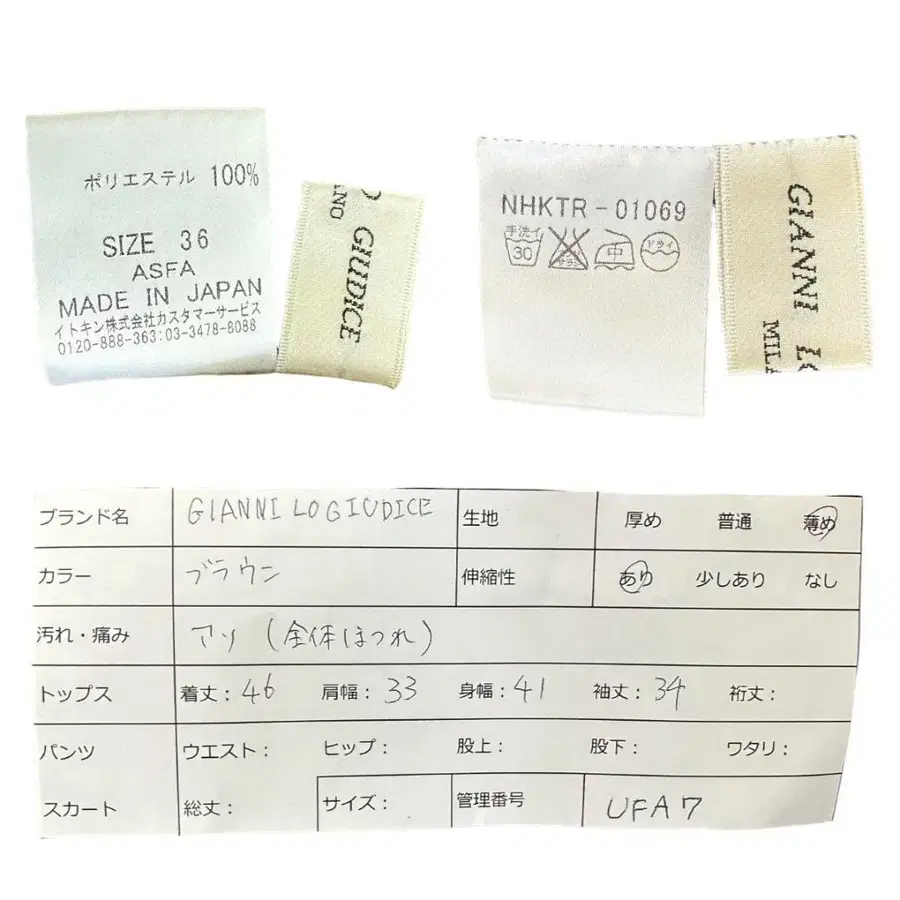 ポリエステル 100%
SIZE 36
ASFA
MADE IN JAPAN
イトキン株式会社カスタマーサービス
0120-888-363:03-3478-8088
GIUDICE
NHKTR-01069
手洗イ
30
中
ドライ
GIANNI LO
MILA
ブランド名 GIANNI LO GIUDICE 生地 厚め 普通 薄め
カラー ブラウン 伸縮性 あり 少しあり なし
汚れ・痛み アリ (全体ほつれ)
トップス 着丈: 46 肩幅: 33 身幅: 41 袖丈: 34 裄丈:
パンツ ウエスト: ヒップ: 股上: 股下: ワタリ:
スカート 総丈: サイズ: 管理番号 UFA7